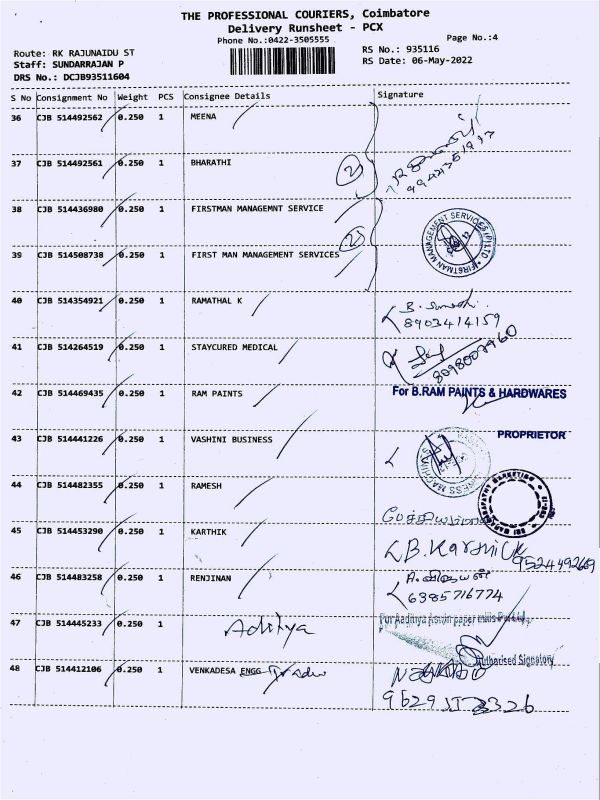 THE PROFESSIONAL COURIERS, Coimbatore
Delivery Runsheet - PCX
Phone No.:0422-3505555
Page No.:4
Route: RK RAJUNAIDU ST
RS No.: 935116
Staff: SUNDARRAJAN P
RS Date: 06-May-2022
DRS No.: DCJB93511604
S No Consignment No Weight PCS Consignee Details Signature
36 CJB 514492562 0.250 1 MEENA
37 CJB 514492561 0.250 1 BHARATHI
2
38 CJB 514436980 0.250 1 FIRSTMAN MANAGEMNT SERVICE
FIRSTMAN MANAGEMENT SERVICES (P) LTD
2
39 CJB 514508738 0.250 1 FIRST MAN MANAGEMENT SERVICES
40 CJB 514354921 0.250 1 RAMATHAL K
8903414159
41 CJB 514264519 0.250 1 STAYCURED MEDICAL
42 CJB 514469435 0.250 1 RAM PAINTS For B.RAM PAINTS & HARDWARES
43 CJB 514441226 0.250 1 VASHINI BUSINESS PROPRIETOR
44 CJB 514482355 0.250 1 RAMESH
45 CJB 514453290 0.250 1 KARTHIK B. Karthick
9524492669
46 CJB 514483258 0.250 1 RENJINAN
6385716774
47 CJB 514445233 0.250 1 Aditya
For Aaditya Aswin paper mills Pvt Ltd.,
Authorised Signatory
48 CJB 514412106 0.250 1 VENKADESA ENGG